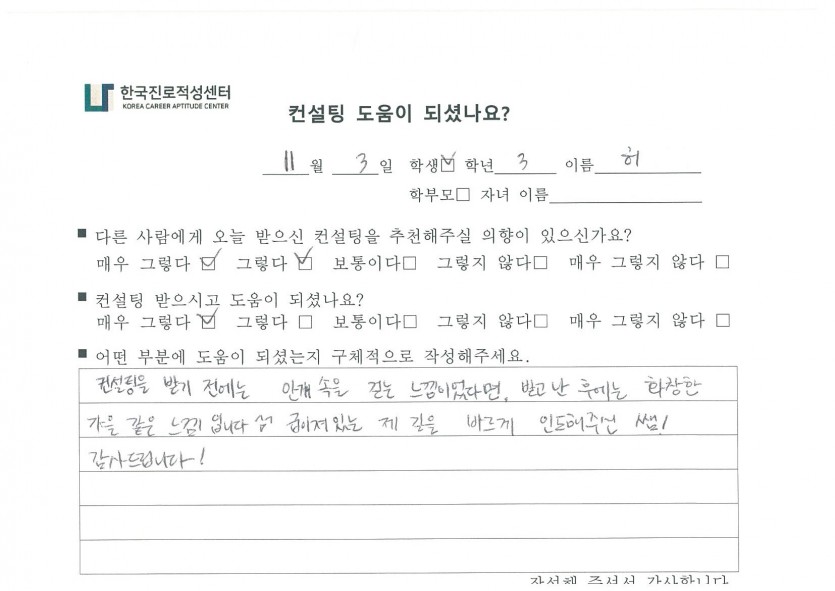 한국진로적성센터
KOREA CAREER APTITUDE CENTER
컨설팅 도움이 되셨나요?
11월 3일 학생☑ 학년 3 이름 허
학부모□ 자녀 이름
■ 다른 사람에게 오늘 받으신 컨설팅을 추천해주실 의향이 있으신가요?
매우 그렇다☑ 그렇다☑ 보통이다□ 그렇지 않다□ 매우 그렇지 않다 □
■ 컨설팅 받으시고 도움이 되셨나요?
매우 그렇다☑ 그렇다 □ 보통이다□ 그렇지 않다□ 매우 그렇지 않다 □
■ 어떤 부분에 도움이 되셨는지 구체적으로 작성해주세요.
컨설팅을 받기 전에는 안개 속을 걷는 느낌이었다면, 받고 난 후에는 화창한
가을 같은 느낌 입니다 제 길을 바르게 인도해주신 쌤!
감사드립니다!
작성해 주셔서 감사합니다